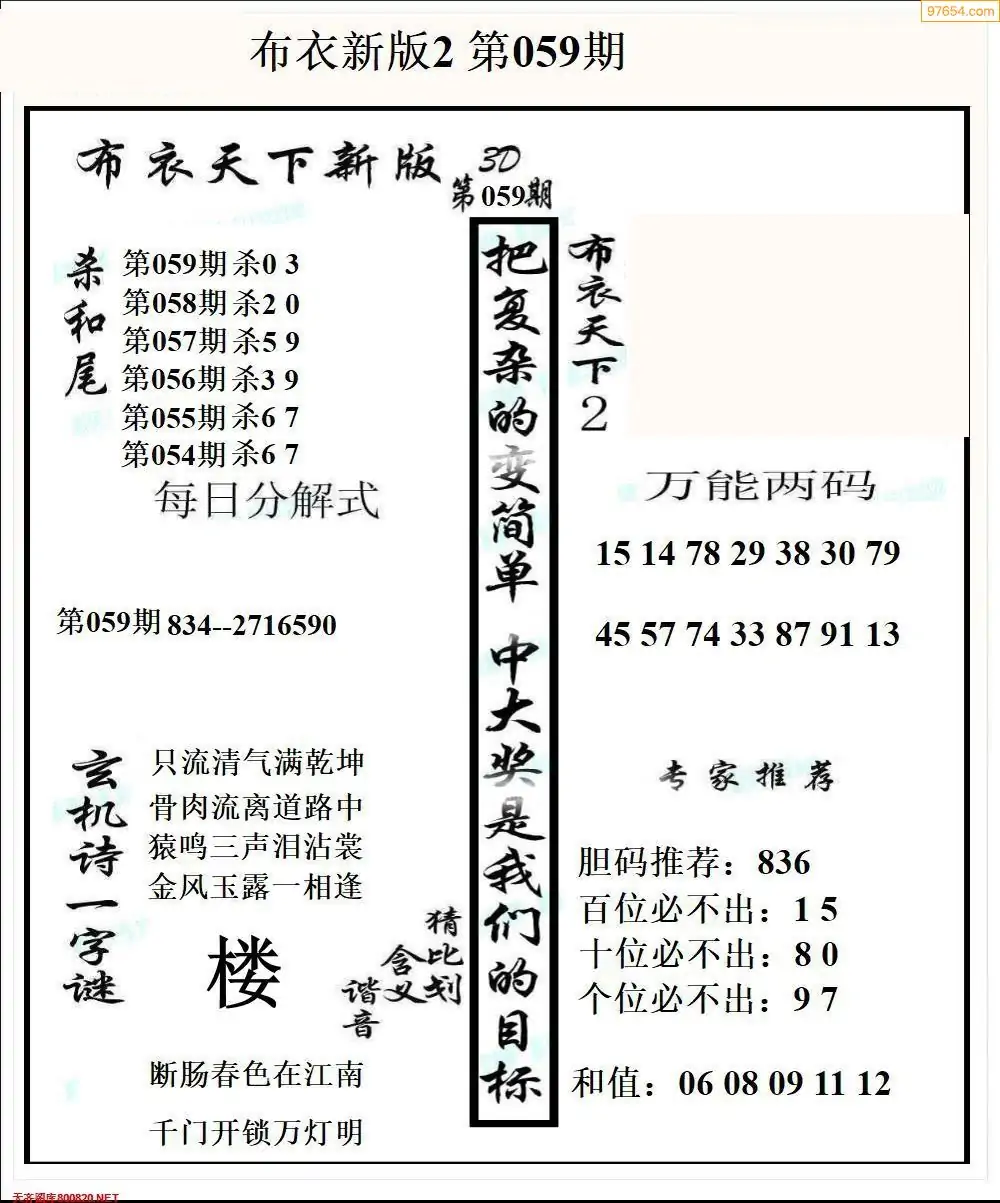 97654.com
布衣新版2 第059期
布衣天下新版
3D
第059期
杀和尾
第059期杀0 3
第058期杀2 0
第057期杀5 9
第056期杀3 9
第055期杀6 7
第054期杀6 7
每日分解式
第059期 834--2716590
玄机诗一字谜
只流清气满乾坤
骨肉流离道路中
猿鸣三声泪沾裳
金风玉露一相逢
楼
猜比划
含义
谐音
断肠春色在江南
千门开锁万灯明
把复杂的变简单 中大奖是我们的目标
布衣天下2
万能两码
15 14 78 29 38 30 79
45 57 74 33 87 91 13
专家推荐
胆码推荐：836
百位必不出：1 5
十位必不出：8 0
个位必不出：9 7
和值：06 08 09 11 12
天齐图库800820.NET